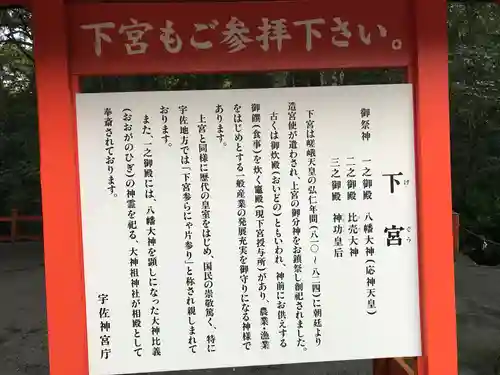 下宮もご参拝下さい。
下宮
げ
ぐう
御祭神 一之御殿 八幡大神(応神天皇)
二之御殿 比売大神
三之御殿 神功皇后
下宮は嵯峨天皇の弘仁年間(八一〇~八二四)に朝廷より
造宮使が遣わされ、上宮の御分神をお鎮祭し創祀されました。
古くは御炊殿(おいどの)ともいわれ、神前にお供えする
御饌(食事)を炊く竈殿(現下宮授与所)があり、農業・漁業
をはじめとする一般産業の発展充実を御守りになる神様で
あります。
上宮と同様に歴代の皇室をはじめ、国民の崇敬篤く、特に
宇佐地方では「下宮参らにゃ片参り」と称され親しまれて
おります。
また、一之御殿には、八幡大神を顕しになった大神比義
(おおがのひぎ)の神霊を祀る、大神祖神社が相殿として
奉斎されております。
宇佐神宮庁